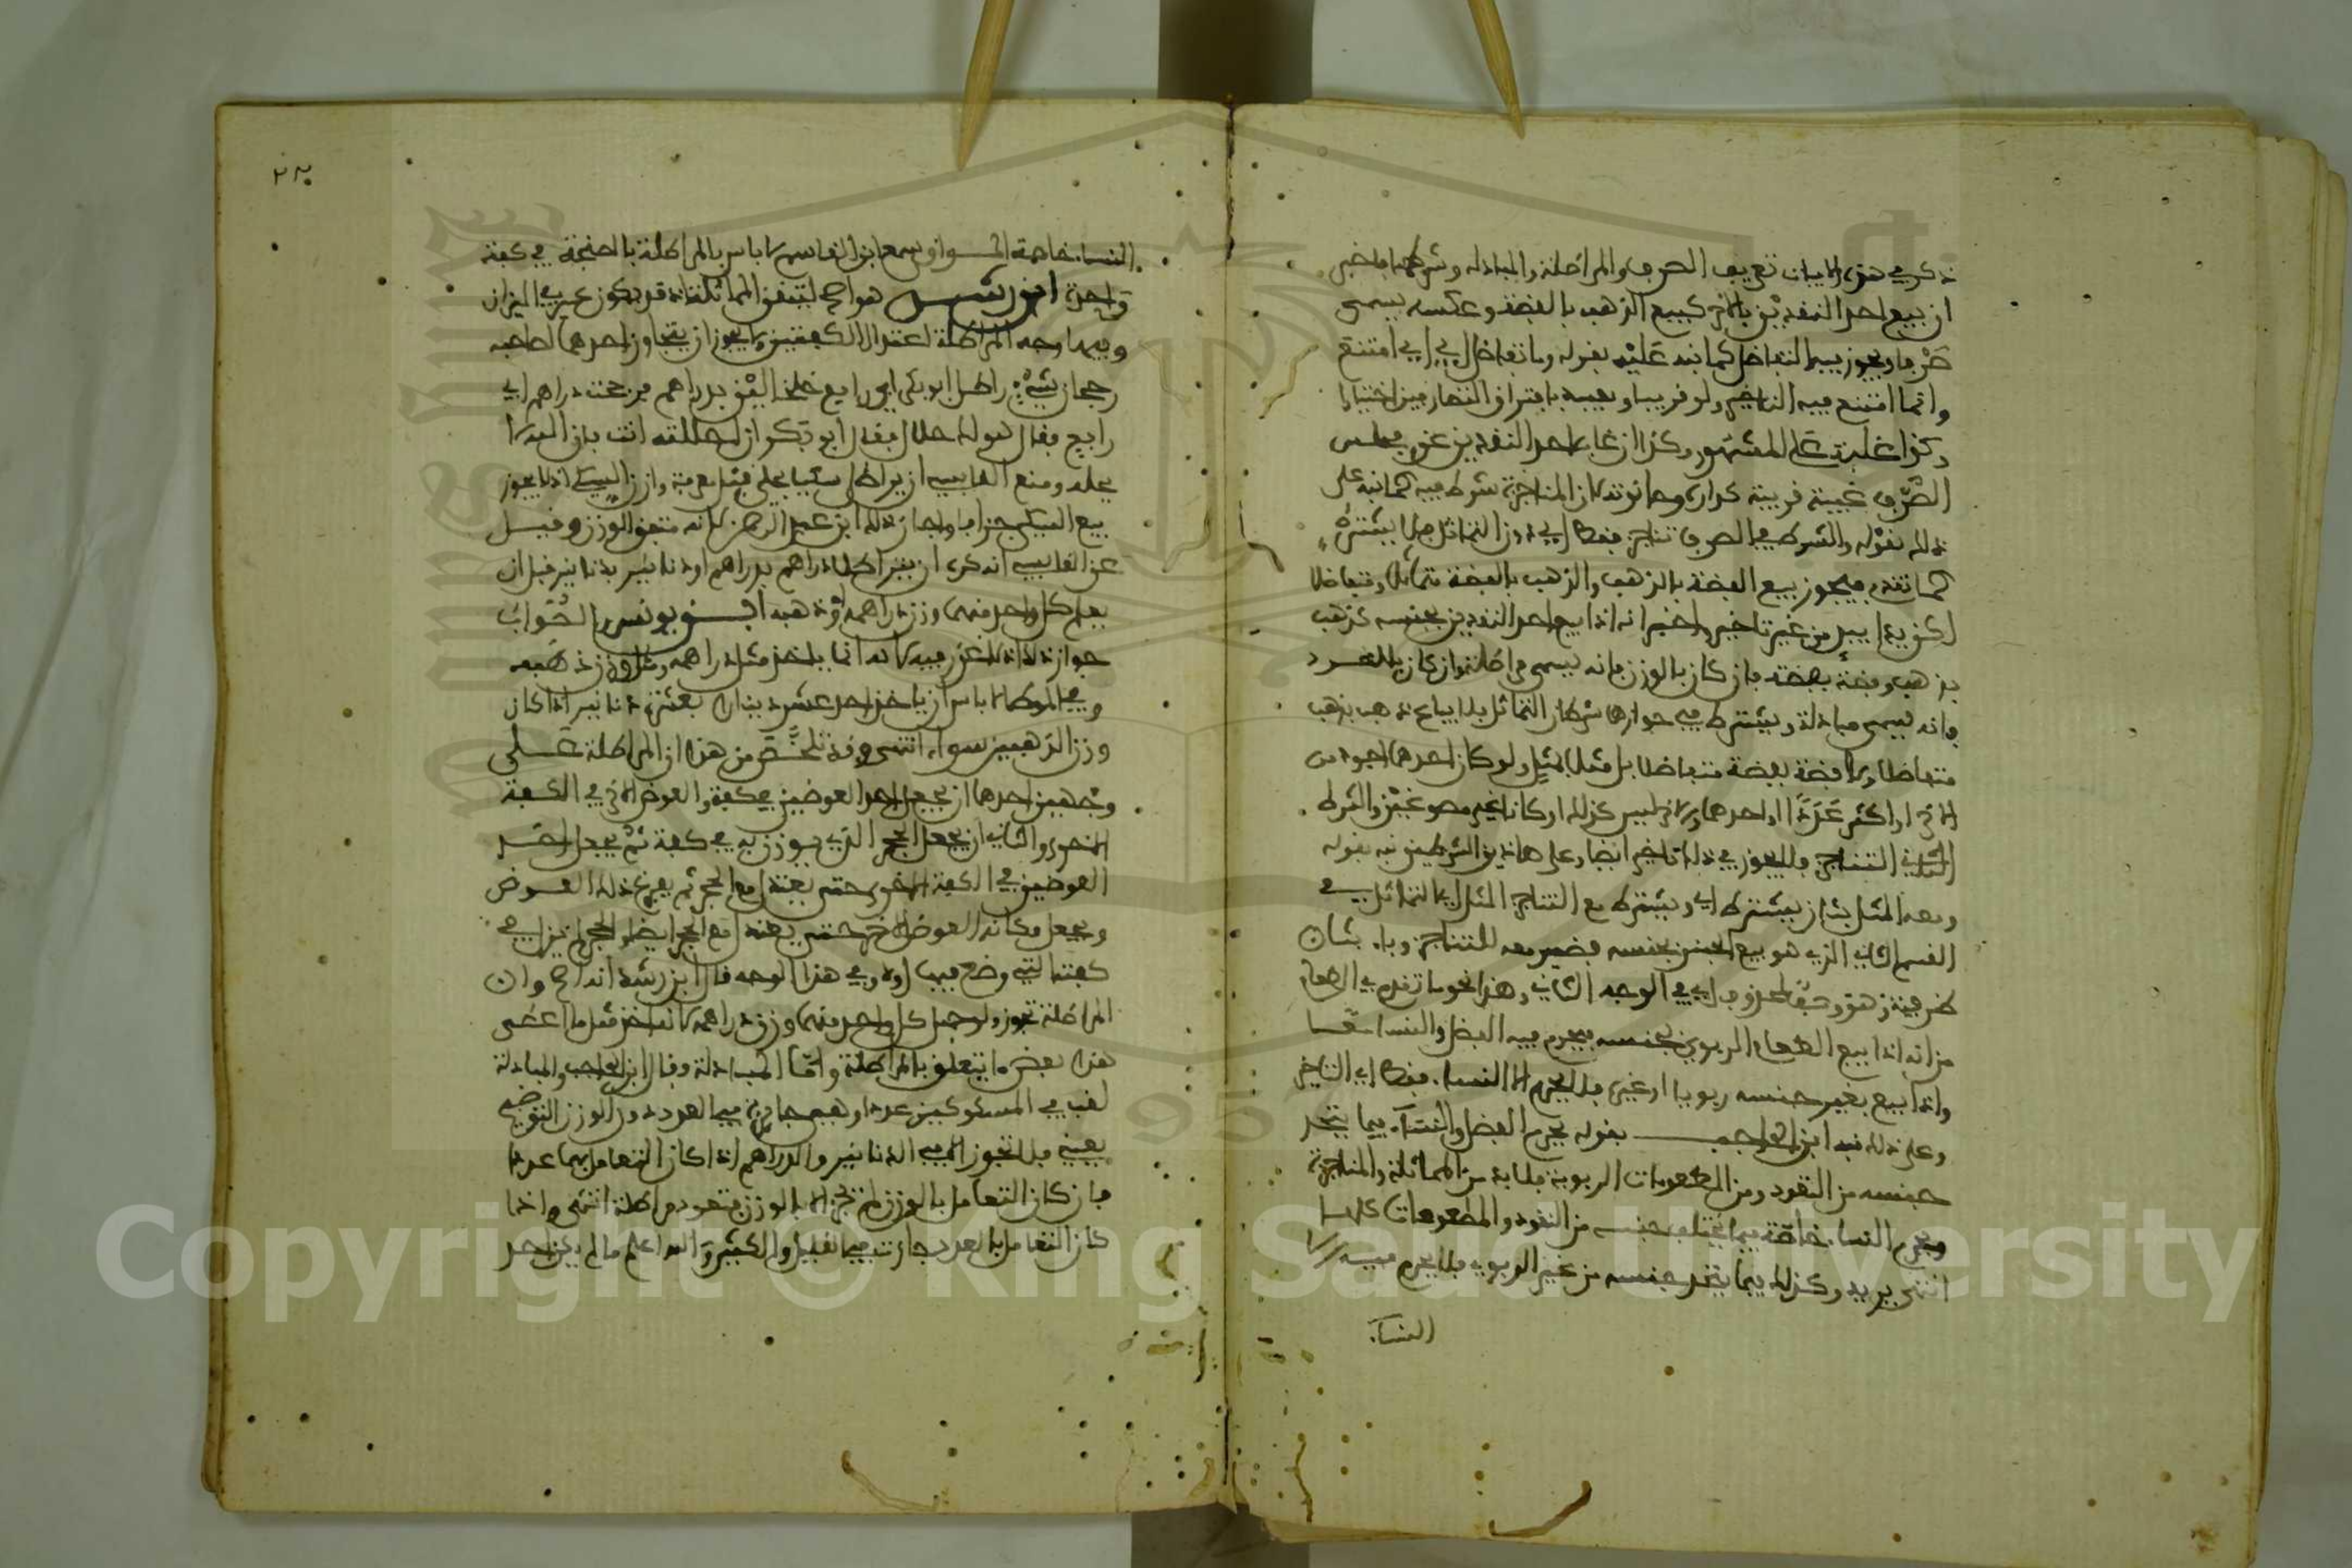 ذكر في هذه الابيات تعريف الصرف والمراطلة والمبادلة وشرطها فاخبر
ان بيع احد النقدين بالاخر كبيع الذهب بالفضة وعكسه يسمى
صرفا ويجوز فيه التفاضل كما نبه عليه بقوله وما تفاضل ابي اي امتنع
وانما امتنع فيه التاخير ولو قريبا وفيه بافتراق المتصارفين اختيارا
وكذا غلبة على المشهور وكذا ان غاب احد النقدين عن مجلس
الصرف غيبة قريبة كدار وحانوت لان المناجزة شرط فيه كما نبه على
ذلك بقوله والشرط في الصرف تناجز فقط اي دون التماثل فلا يشترط
كما تقدم فيجوز بيع الفضة بالذهب والذهب بالفضة متماثلا ومتفاضلا
لكن يدا بيد من غير تاخير واخبر انه اذا بيع احد النقدين بجنسه كذهب
بذهب وفضة بفضة فان كان بالوزن فانه يسمى مراطلة وان كان بالعدد
فانه يسمى مبادلة ويشترط في جوازها شرطان التماثل فلا يباع ذهب بذهب
متفاضلا ولا فضة بفضة متفاضلا بل مثلا بمثل ولو كان احدهما اجود من
الاخر او اكثر عددا او احدهما والاخر ليس كذلك او كانا غير مصوغين والشرط
الثاني التناجز فلا يجوز في ذلك تاخير ايضا وعلى هاذين الشرطين نبه بقوله
ومعه المثل بثان يشترط اي ويشترط مع التناجز المثل اي التماثل في
القسم الثاني الذي هو بيع الجنس بجنسه فضمير معه للتناجز وباء بثان
ظرفية وهو وصف لمحذوف اي في الوجه الثاني وهذا نحو ما تقدم في الطعام
من انه اذا بيع الطعام الربوي بجنسه فيحرم فيه الفضل والنسا معا
واذا بيع بغير جنسه ربويا او غيره فلا يحرم الا النسا. فقط اي التاخير
وعلى ذلك نبه ابن الحاجب بقوله يحرم الفضل والنسآء فيما يتحد
جنسه من النقود ومن المطعومات الربوية فلا بد من المماثلة والمناجزة
ويحرم النسا. خاصة فيما يختلف جنسه من النقود والمطعومات كلها
انتهى يريد وكذلك فيما يتحد جنسه من غير الربوي فلا يحرم فيه الا
النسآ.
النسا. خاصة وسمع ابن القاسم لا باس بالمراطلة بالصنجة في كفة
واحدة ابن رشد هو اصح لتيقن المماثلة اذ قد يكون عين في الميزان
وفيها وجه المراطلة اعتدال الكفتين ولا يجوز ان يتجاوز احدهما لصاحبه
رجحان شيء راطل ابو بكر ابا رافع خلخالين بدراهم فرجحت دراهم ابي
رافع فقال هو لك حلال فقال ابو بكر ان احللته انت فان الله لا
يحله ومنع القابسي ان يراطل
بيع السكي جزافا واجاز ذلك ابن عبد الرحمن لانه متفق الوزن وقيل
عن القابسي انه كره ان يتراطلا دراهم بدراهم او دنانير بدنانير قبل ان
يعلم كل واحد منهما وزن دراهمه او ذهبه ابن يونس الصواب
جواز ذلك اذ لا غرر فيه لانه انما ياخذ مثل دراهمه ومثل وزن ذهبه
وفي الموطا لا باس ان ياخذ احد عشر دينارا بعشرة دنانير اذا كان
وزن الذهبين سواء انتهى وقد تلخص من هذا ان المراطلة على
وجهين احدهما ان يجعل احد العوضين في كفة والعوض الاخر في الكفة
الاخرى والثاني ان يجعل الحجر الذي يوزن به في كفة ثم يجعل احد
العوضين في الكفة الاخرى حتى يعتدل مع الحجر ثم يفرغ ذلك العوض
ويجعل مكانه العوض الاخر حتى يعتدل مع الحجر ايضا والحجر لم يزل في
كفته التي وضع فيها اولا وفي هذا الوجه قال ابن رشد انه اصح وان
المراطلة تجوز ولو جهل كل واحد منهما وزن دراهمه لانه اخذ مثل ما اعطى
هذا بعض ما يتعلق بالمراطلة واما المبادلة فقال ابن الحاجب والمبادلة
لقب في المسكوكين عددا وهي جائزة فيما العدد دون الوزن التوضيح
يعني فلا تجوز الا في الدنانير والدراهم اذا كان التعامل بهما عددا
فان كان التعامل بالوزن لم تجز الا بالوزن فتعود مراطلة انتهى واذا
كان التعامل بالعدد جازت في القليل والكثير والله اعلم ما لم يكن احد